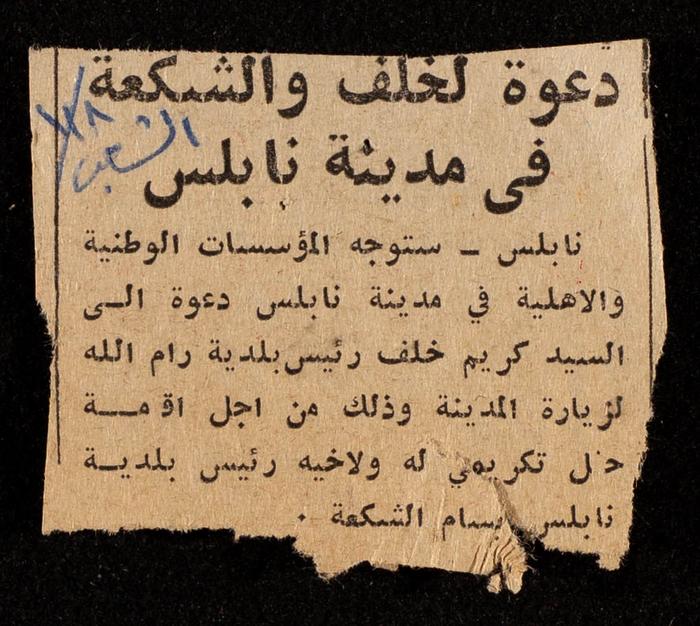 دعوة لخلف والشكعة
فى مدينة نابلس
الشعب
نابلس ــ ستوجه المؤسسات الوطنية
والاهلية في مدينة نابلس دعوة الـى
السيد كريم خلف رئيس بلدية رام الله
لزيارة المدينة وذلك من اجل اقامـــة
حفل تكريمي له ولاخيه رئيس بلديــة
نابلس بسام الشكعة .